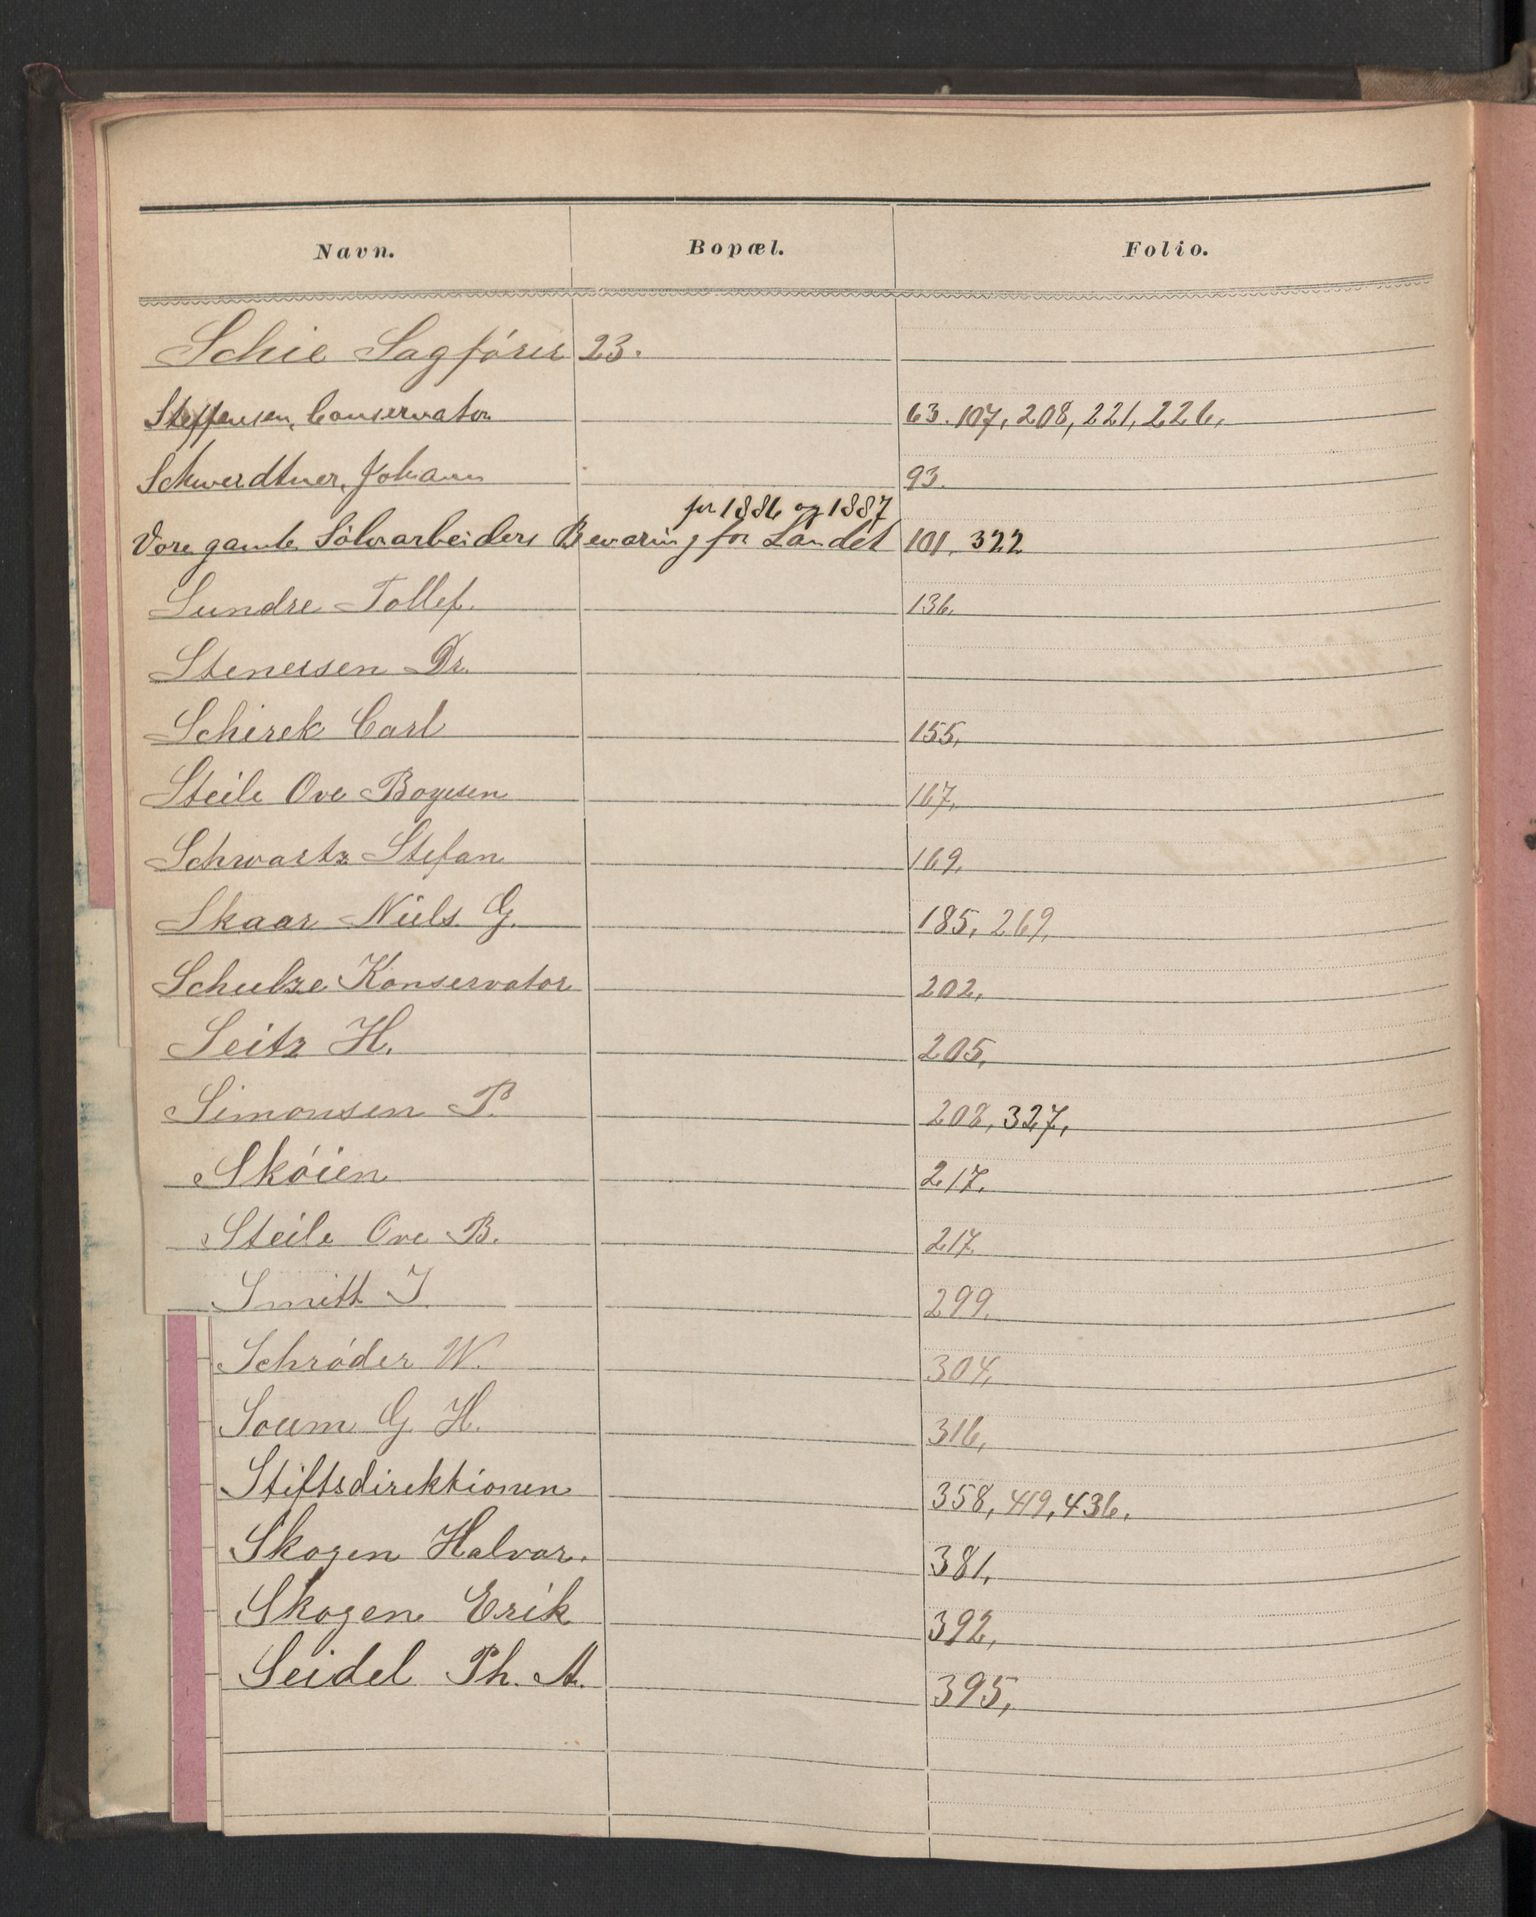 Navn. Bopæl. Folio.
Schie Sagfører 23.
Steffensen, Conservator 63. 107, 208, 221, 226,
Schwerdtner, Johann 93.
for 1886 og 1887
Vore gamle Sølvarbeiders Bevaring for Landet 101, 322
Sundre Tollef. 136.
Stenersen Dr.
Schirek Carl 155,
Steile Ove Boyesen 167,
Schwartz Stefan 169,
Skaar Niels G. 185, 269,
Schulze Konservator 202,
Seitz H. 205,
Simonsen P. 208, 327,
Skøien 217,
Steile Ove B. 217
Smitt J. 299.
Schrøder W. 304,
Soum G. H. 316,
Stiftsdirektionen 358, 419, 436,
Skogen Halvor. 381,
Skogen Erik 392,
Seidel Ph. A. 395,